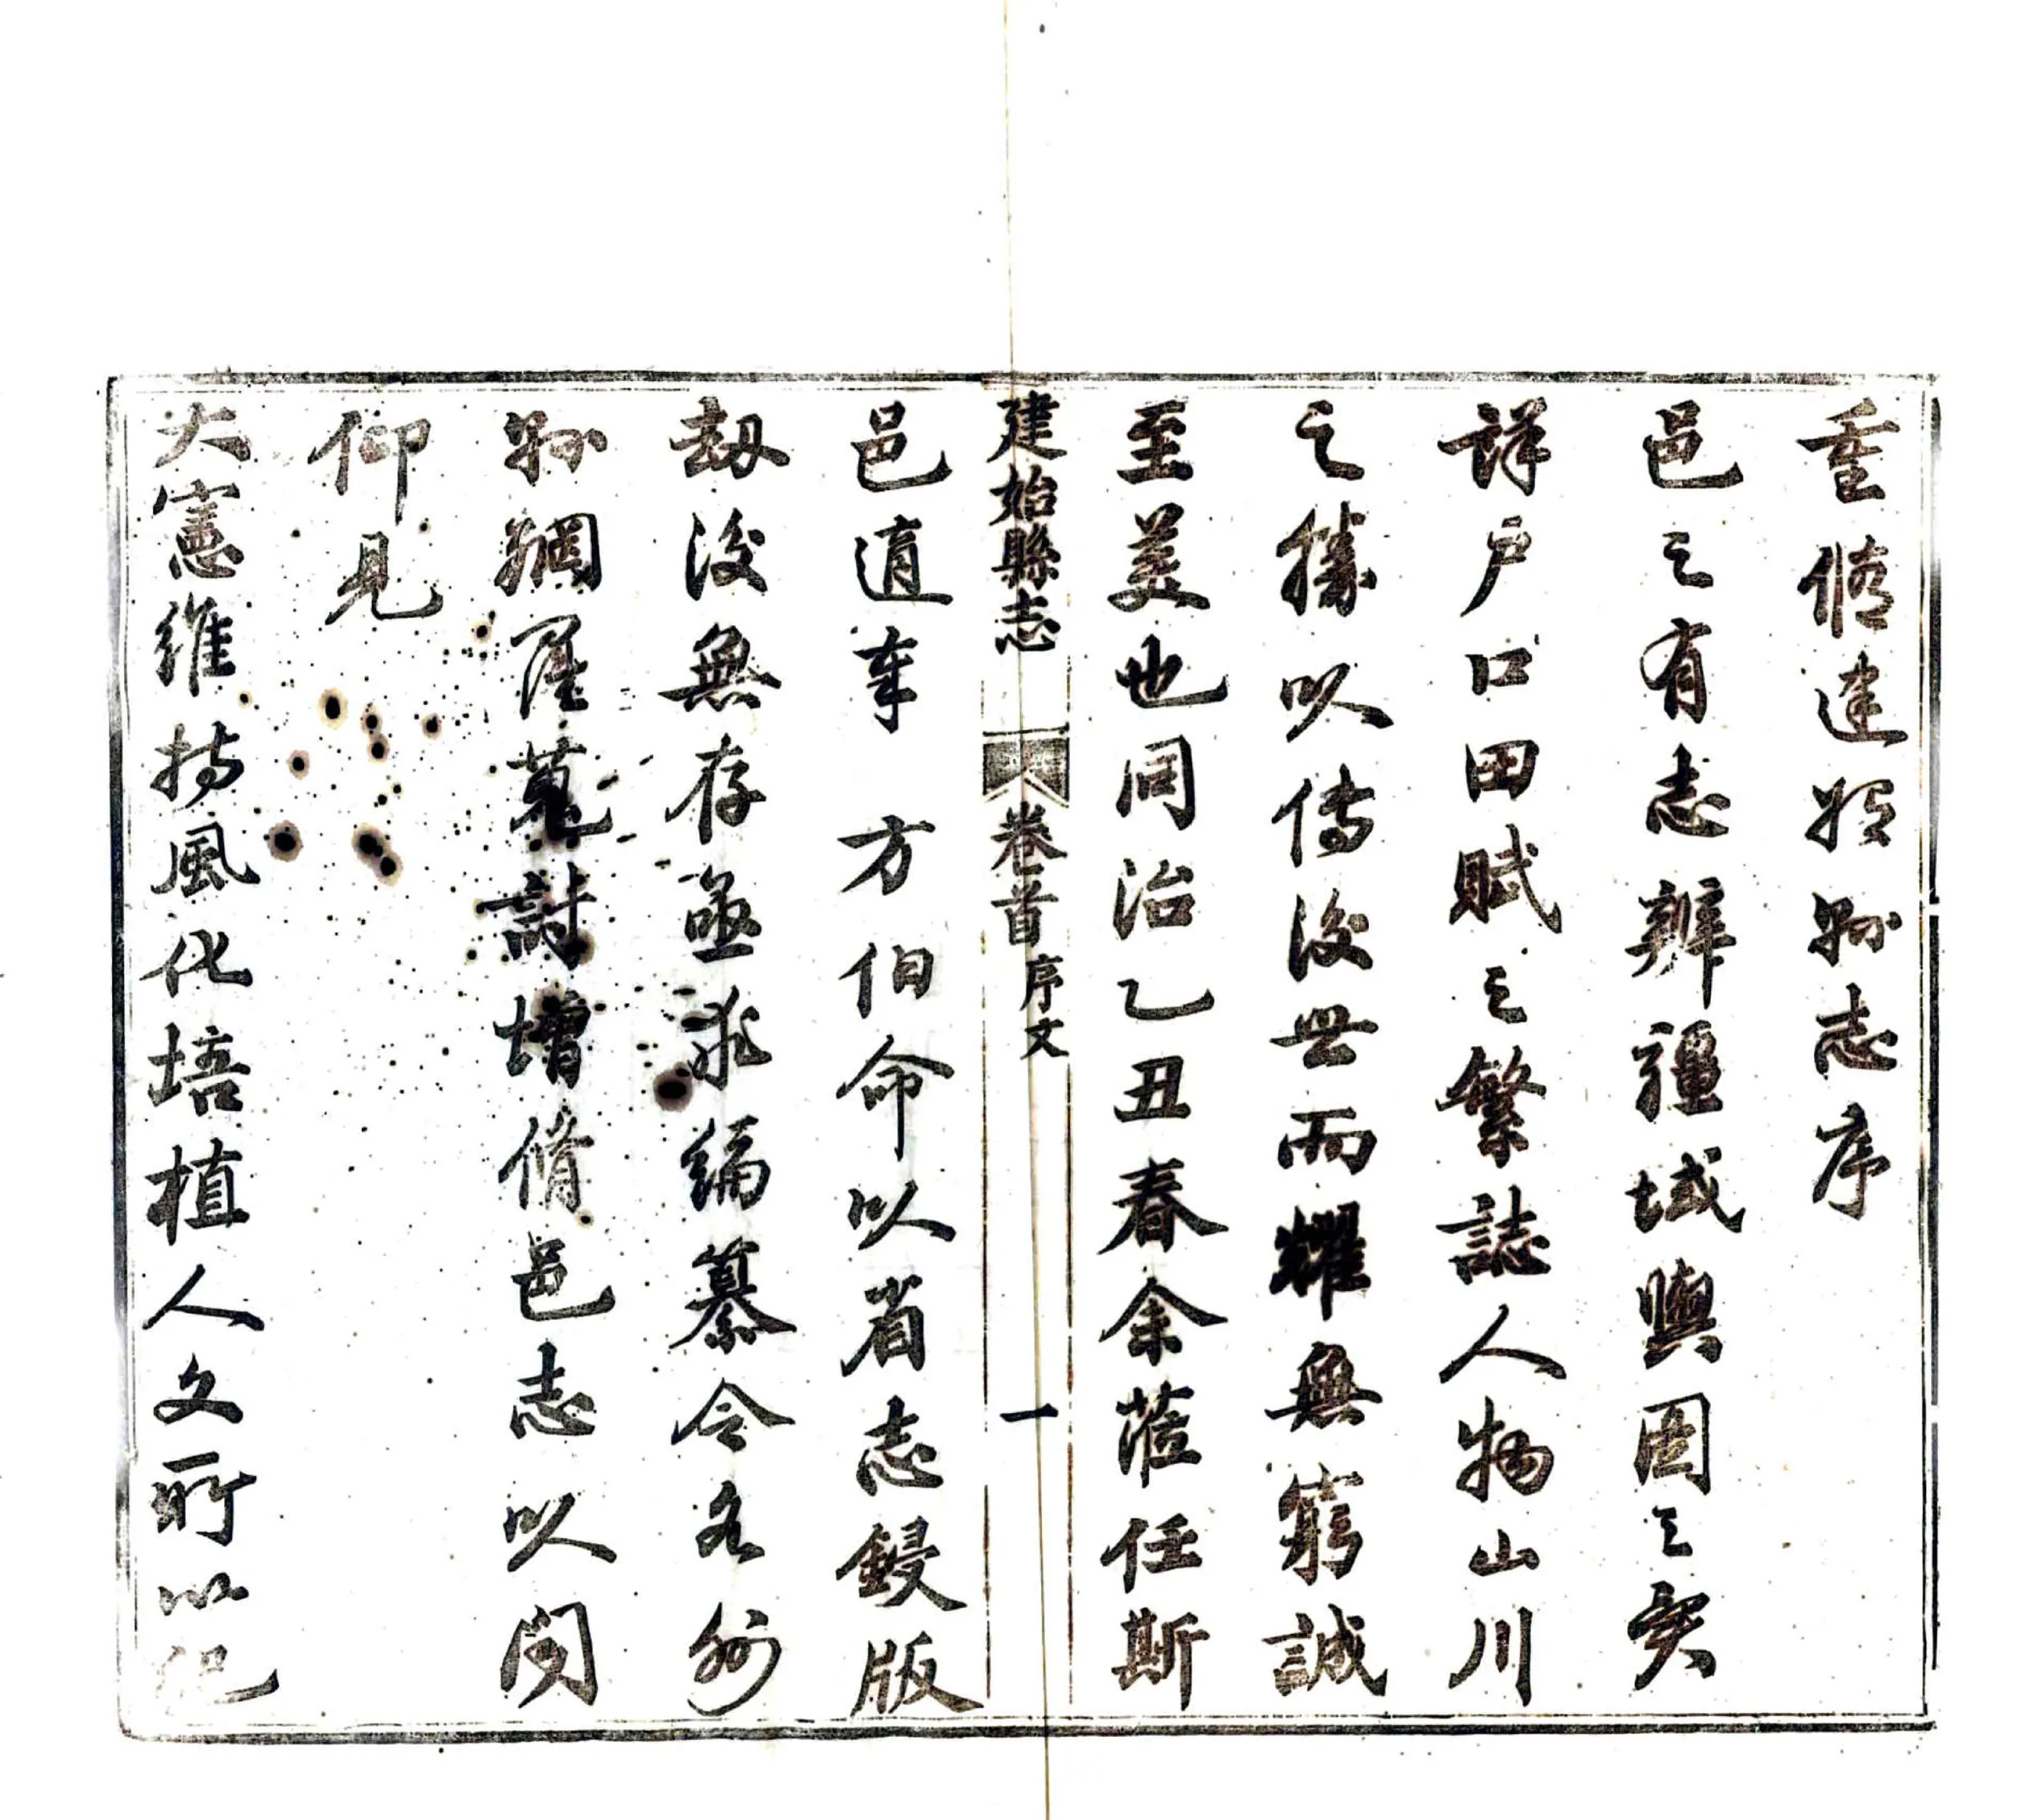 重脩建始縣志序
邑之有志辨疆域輿圖之實
詳戶口田賦之繁誌人物山川
之勝以傳後世而耀無窮誠
至美也同治乙丑春余蒞任斯
建始縣志 卷首 序文 一
邑適奉 方伯命以省志鋟版
劫後無存亟求編纂令各州
縣網羅蒐討增脩邑志以聞
仰見
大憲維持風化培植人文所以紀